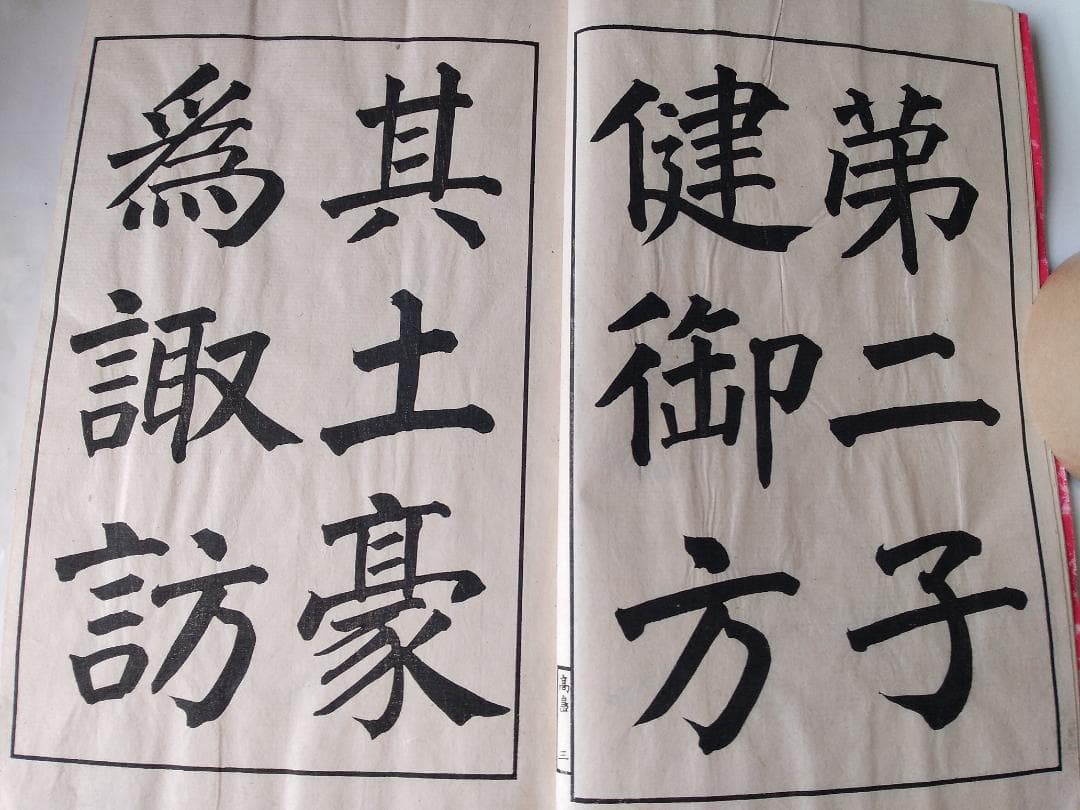 苐二子
健御方
其土豪
爲諏訪
高
三